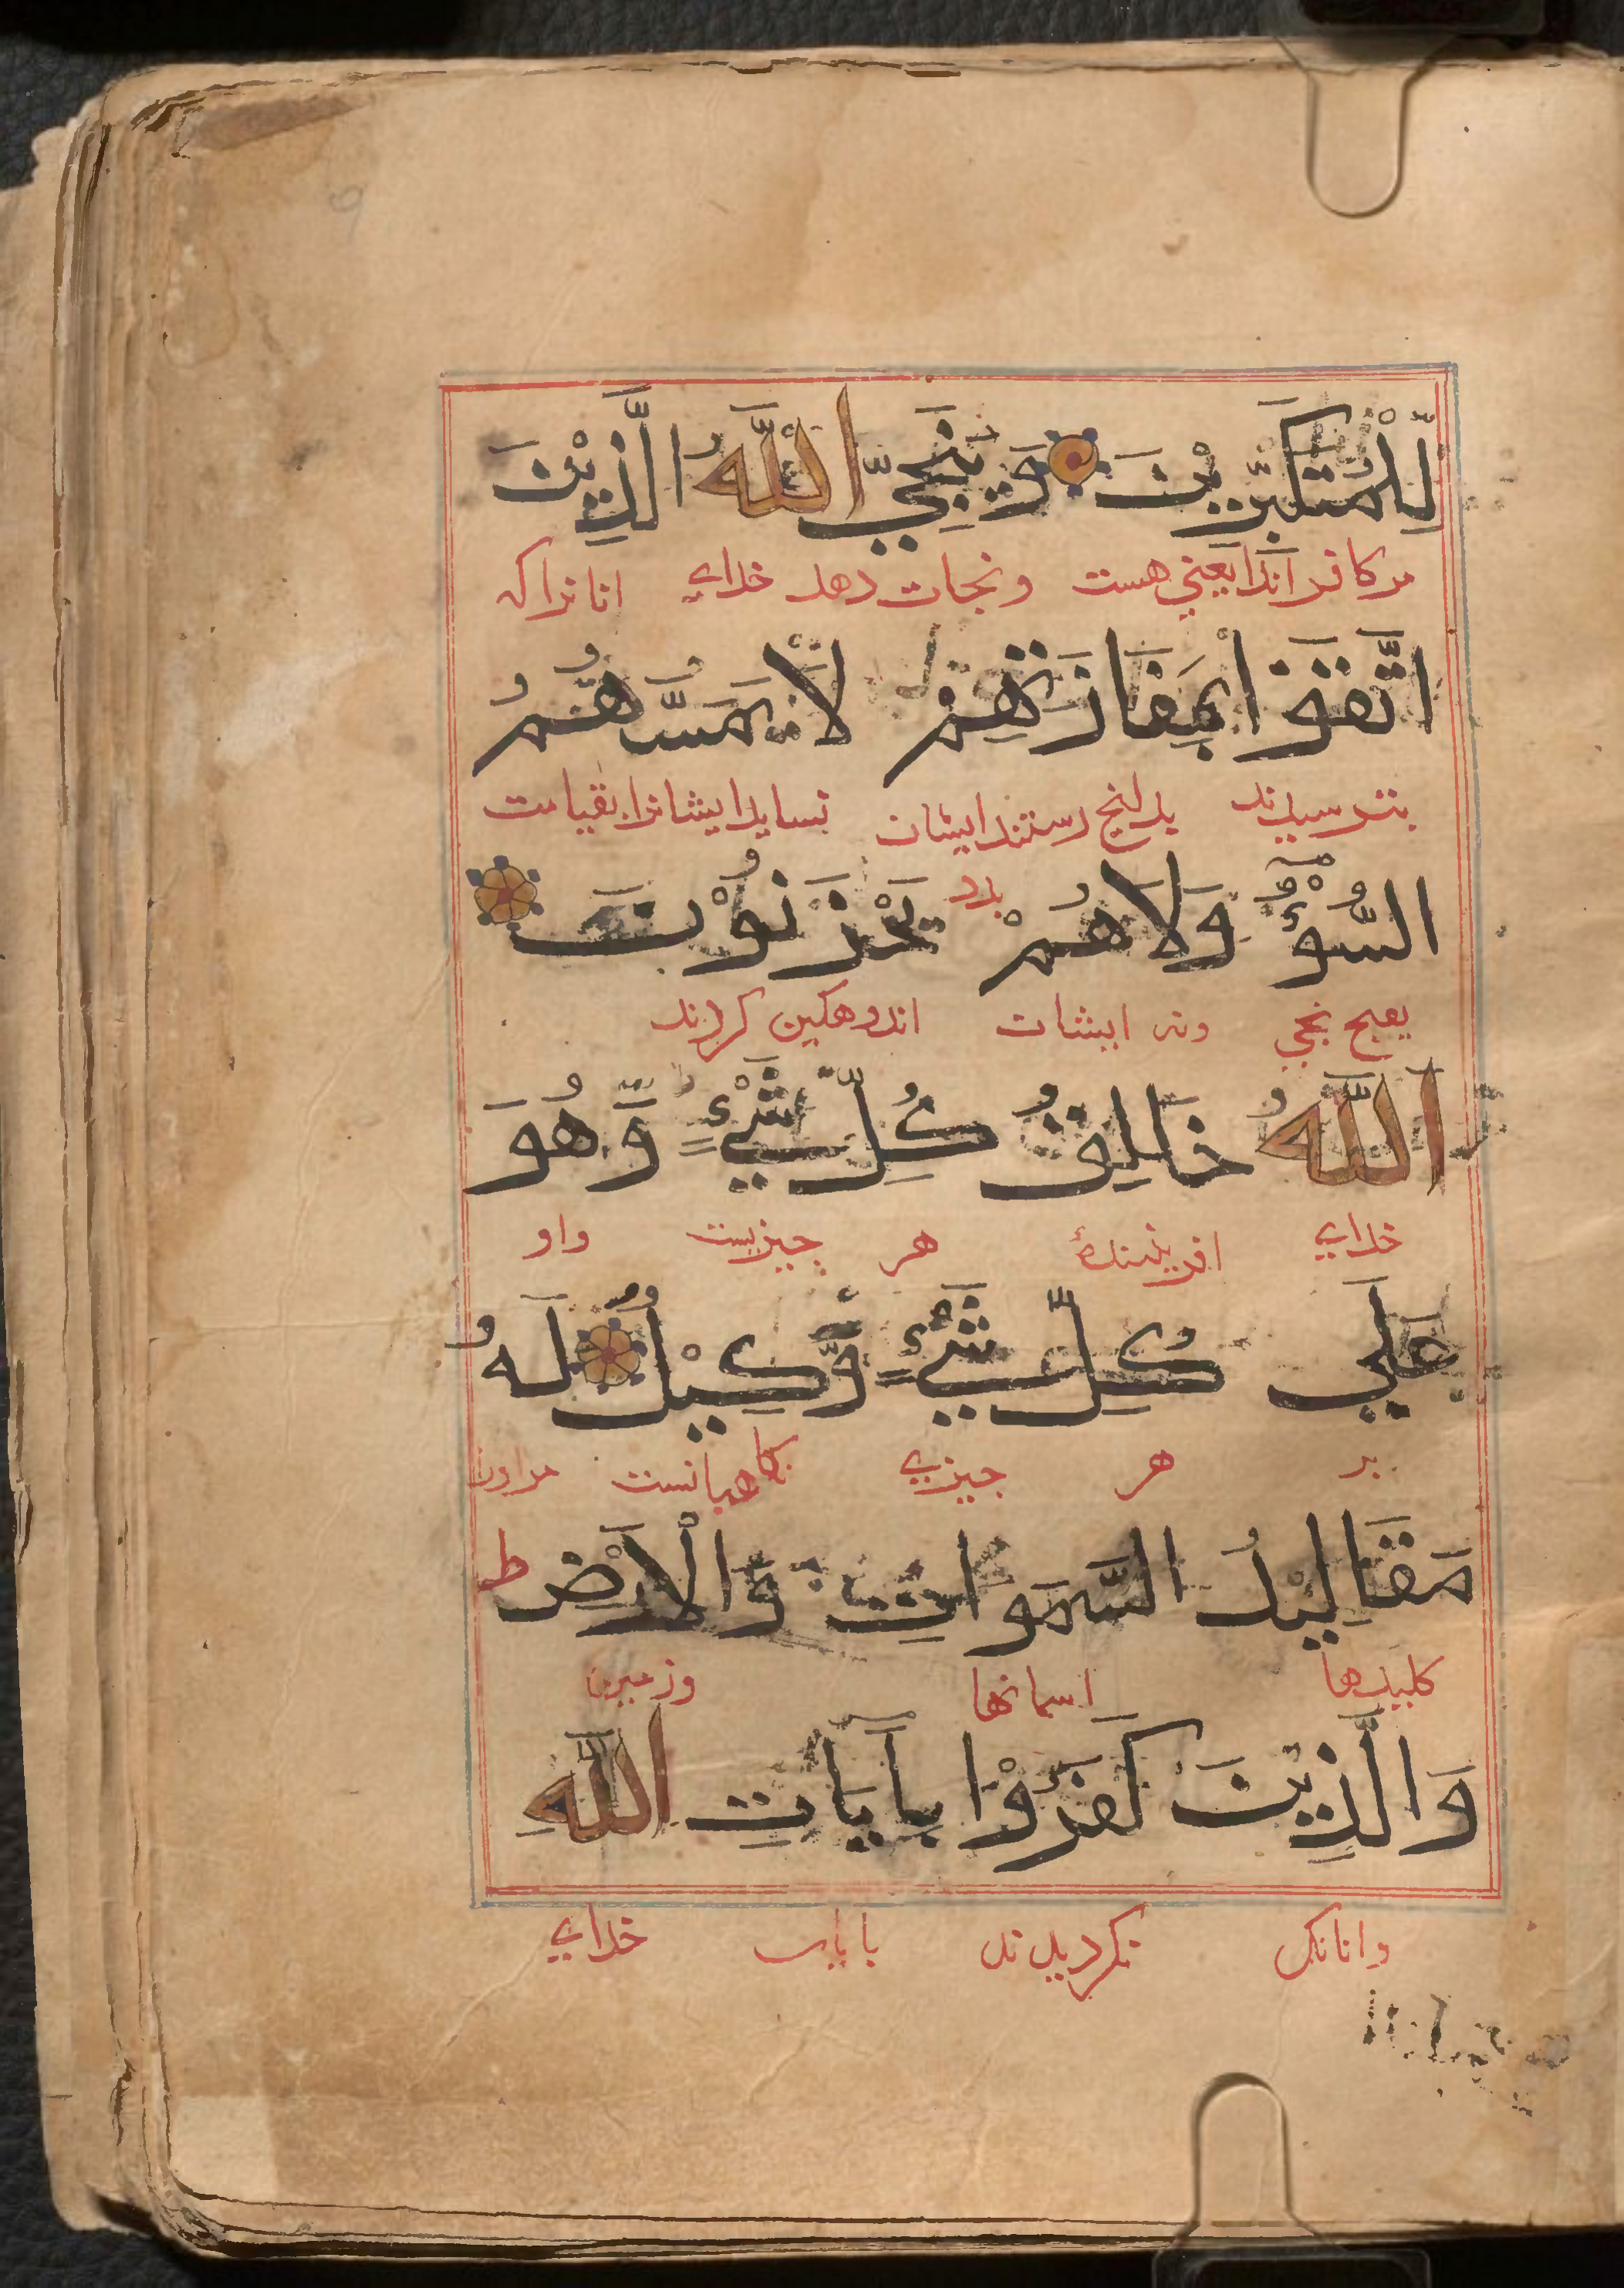 لِّلْمُتَكَبِّرِيْنَ وَيُنَجِّي اللّٰهُ الَّذِيْنَ
مر کافرانرا یعنی هست ونجات دهد خدای انانراکه
اتَّقَوْا بِمَفَازَتِهِمْ لَا يَمَسُّهُمُ
بترسیدند بدانچ رستند ایشان نساید ایشانرا بقیامت
السُّوْٓءُ وَلَا هُمْ يَحْزَنُوْنَ
بدد
ونه ایشان اندوهکین کردند
اللّٰهُ خَالِقُ كُلِّ شَيْءٍ وَّهُوَ
خدای افریننده هر جیزیست واو
عَلٰي كُلِّ شَيْءٍ وَّكِيْلٌ لَهُ
بر هر جیزی نکاهبانست مراورا
مَقَالِيْدُ السَّمَوَاتِ وَالْاَرْضِ ط
کلیدها اسمانها وزمین
وَالَّذِيْنَ كَفَرُوْا بِاٰيَاتِ اللّٰهِ
وانانک نکردیدند بایات خدای